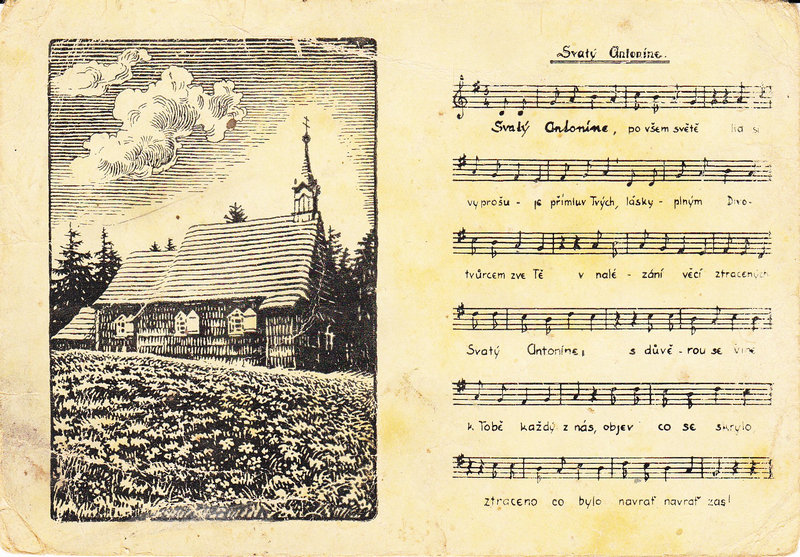 Svatý Antoníne.
Svatý Antoníne, po všem světě
vyprošu - je přímluv Tvých, lásky - plným Divo-
tvůrcem zve Tě v nalé - zání věcí ztracených
Svatý Antoníne, s důvě - rou se vine
k Tobě každý z nás, objev co se skrylo
ztraceno co bylo navrať navrať zas!